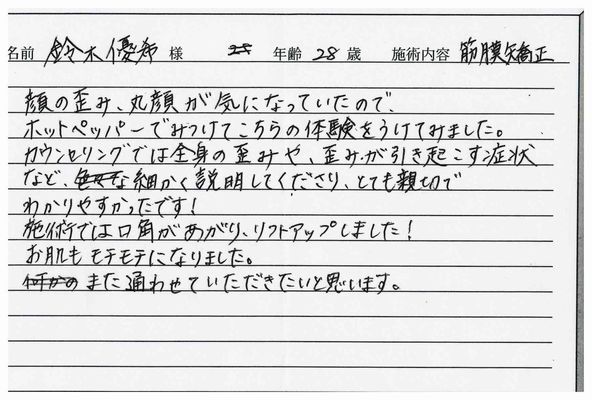 名前 鈴木優希 様 年齢 28 歳 施術内容 筋膜矯正
顔の歪み、丸顔が気になっていたので、
ホットペッパーでみつけてこちらの体験をうけてみました。
カウンセリングでは全身の歪みや、歪みが引き起こす症状
など、細かく説明してくださり、とても親切で
わかりやすかったです!
施術では口角があがり、リフトアップしました!
お肌もモチモチになりました。
また通わせていただきたいと思います。